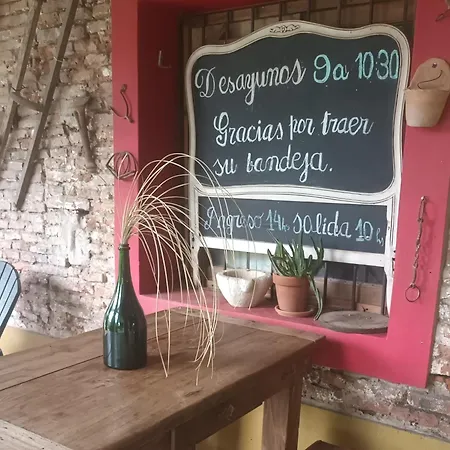 Desayunos 9 a 10:30
Gracias por traer
su bandeja.
Ingreso 14h salida 10h